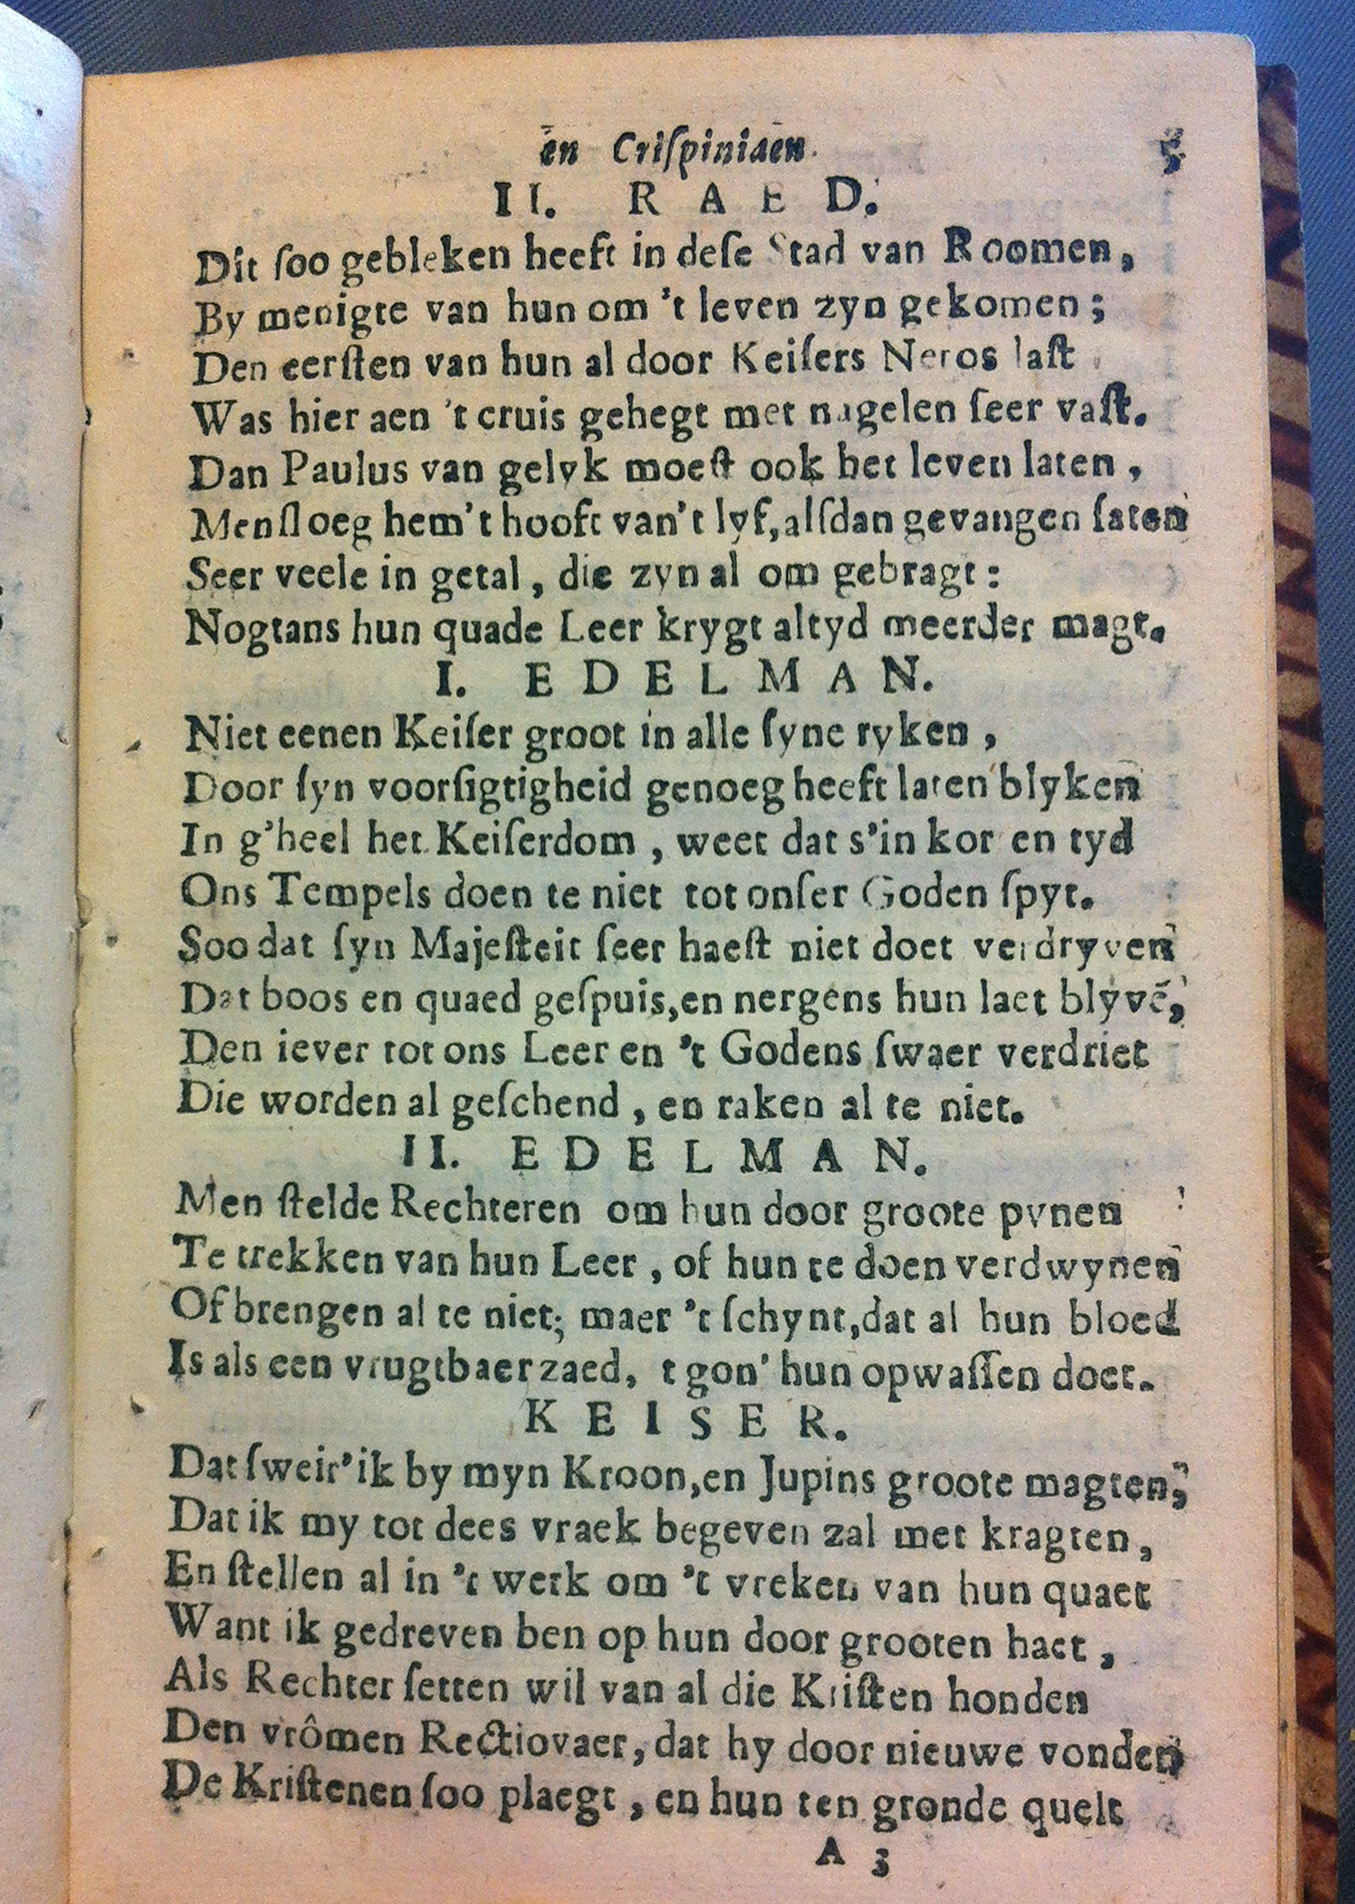 en Criſpiniaen. 5
II. RAED.
Dit ſoo gebleken heeft in deſe Stad van Roomen,
By menigte van hun om 't leven zyn gekomen;
Den eerſten van hun al door Keiſers Neros laſt
Was hier aen 't cruis gehegt met nagelen ſeer vaſt.
Dan Paulus van gelyk moeſt ook het leven laten,
Men ſloeg hem 't hooft van 't lyf, alſdan gevangen ſaten
Seer veele in getal, die zyn al om gebragt:
Nogtans hun quade Leer krygt altyd meerder magt.
I. EDELMAN.
Niet eenen Keiſer groot in alle ſyne ryken,
Door ſyn voorſigtigheid genoeg heeft laten blyken
In g'heel het Keiſerdom, weet dat s'in kor en tyd
Ons Tempels doen te niet tot onſer Goden ſpyt.
Soo dat ſyn Majeſteit ſeer haeſt niet doet verdryven
Dat boos en quaed geſpuis, en nergens hun laet blyvē,
Den iever tot ons Leer en 't Godens ſwaer verdriet
Die worden al geſchend, en raken al te niet.
II. EDELMAN.
Men ſtelde Rechteren om hun door groote pynen
Te trekken van hun Leer, of hun te doen verdwynen
Of brengen al te niet; maer 't ſchynt, dat al hun bloed
Is als een vrugtbaer zaed, t gon' hun opwaſſen doet.
KEISER.
Dat ſweir' ik by myn Kroon, en Jupins groote magten,
Dat ik my tot dees vraek begeven zal met kragten,
En ſtellen al in 't werk om 't vreken van hun quaet
Want ik gedreven ben op hun door grooten haet,
Als Rechter ſetten wil van al die Kriſten honden
Den vrômen Rectiovaer, dat hy door nieuwe vonden
De Kriſtenen ſoo plaegt, en hun ten gronde quelt
A 3